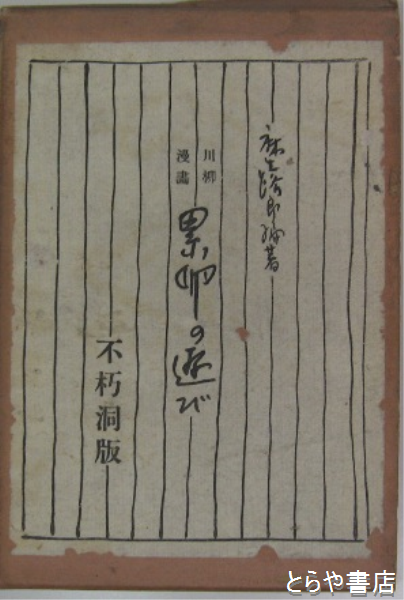 麻生路郎編著
川柳
漫畫
累卵の遊び
不朽洞版
とらや書店